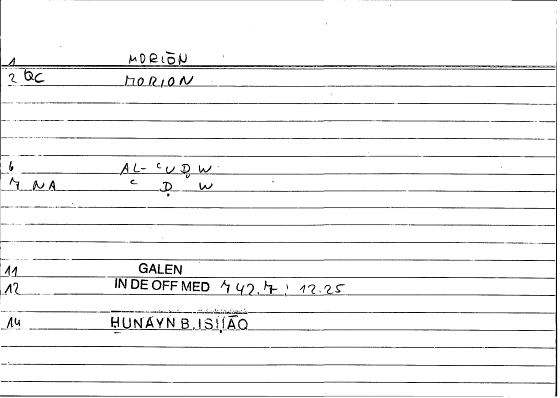 1 MORIŌN
2 QC MORION
6 AL- ʿUḌW
7 NA ʿ Ḍ W
11 GALEN
12 IN DE OFF MED 742.7 ; 12.25
14 ḤUNAYN B. ISḤĀQ